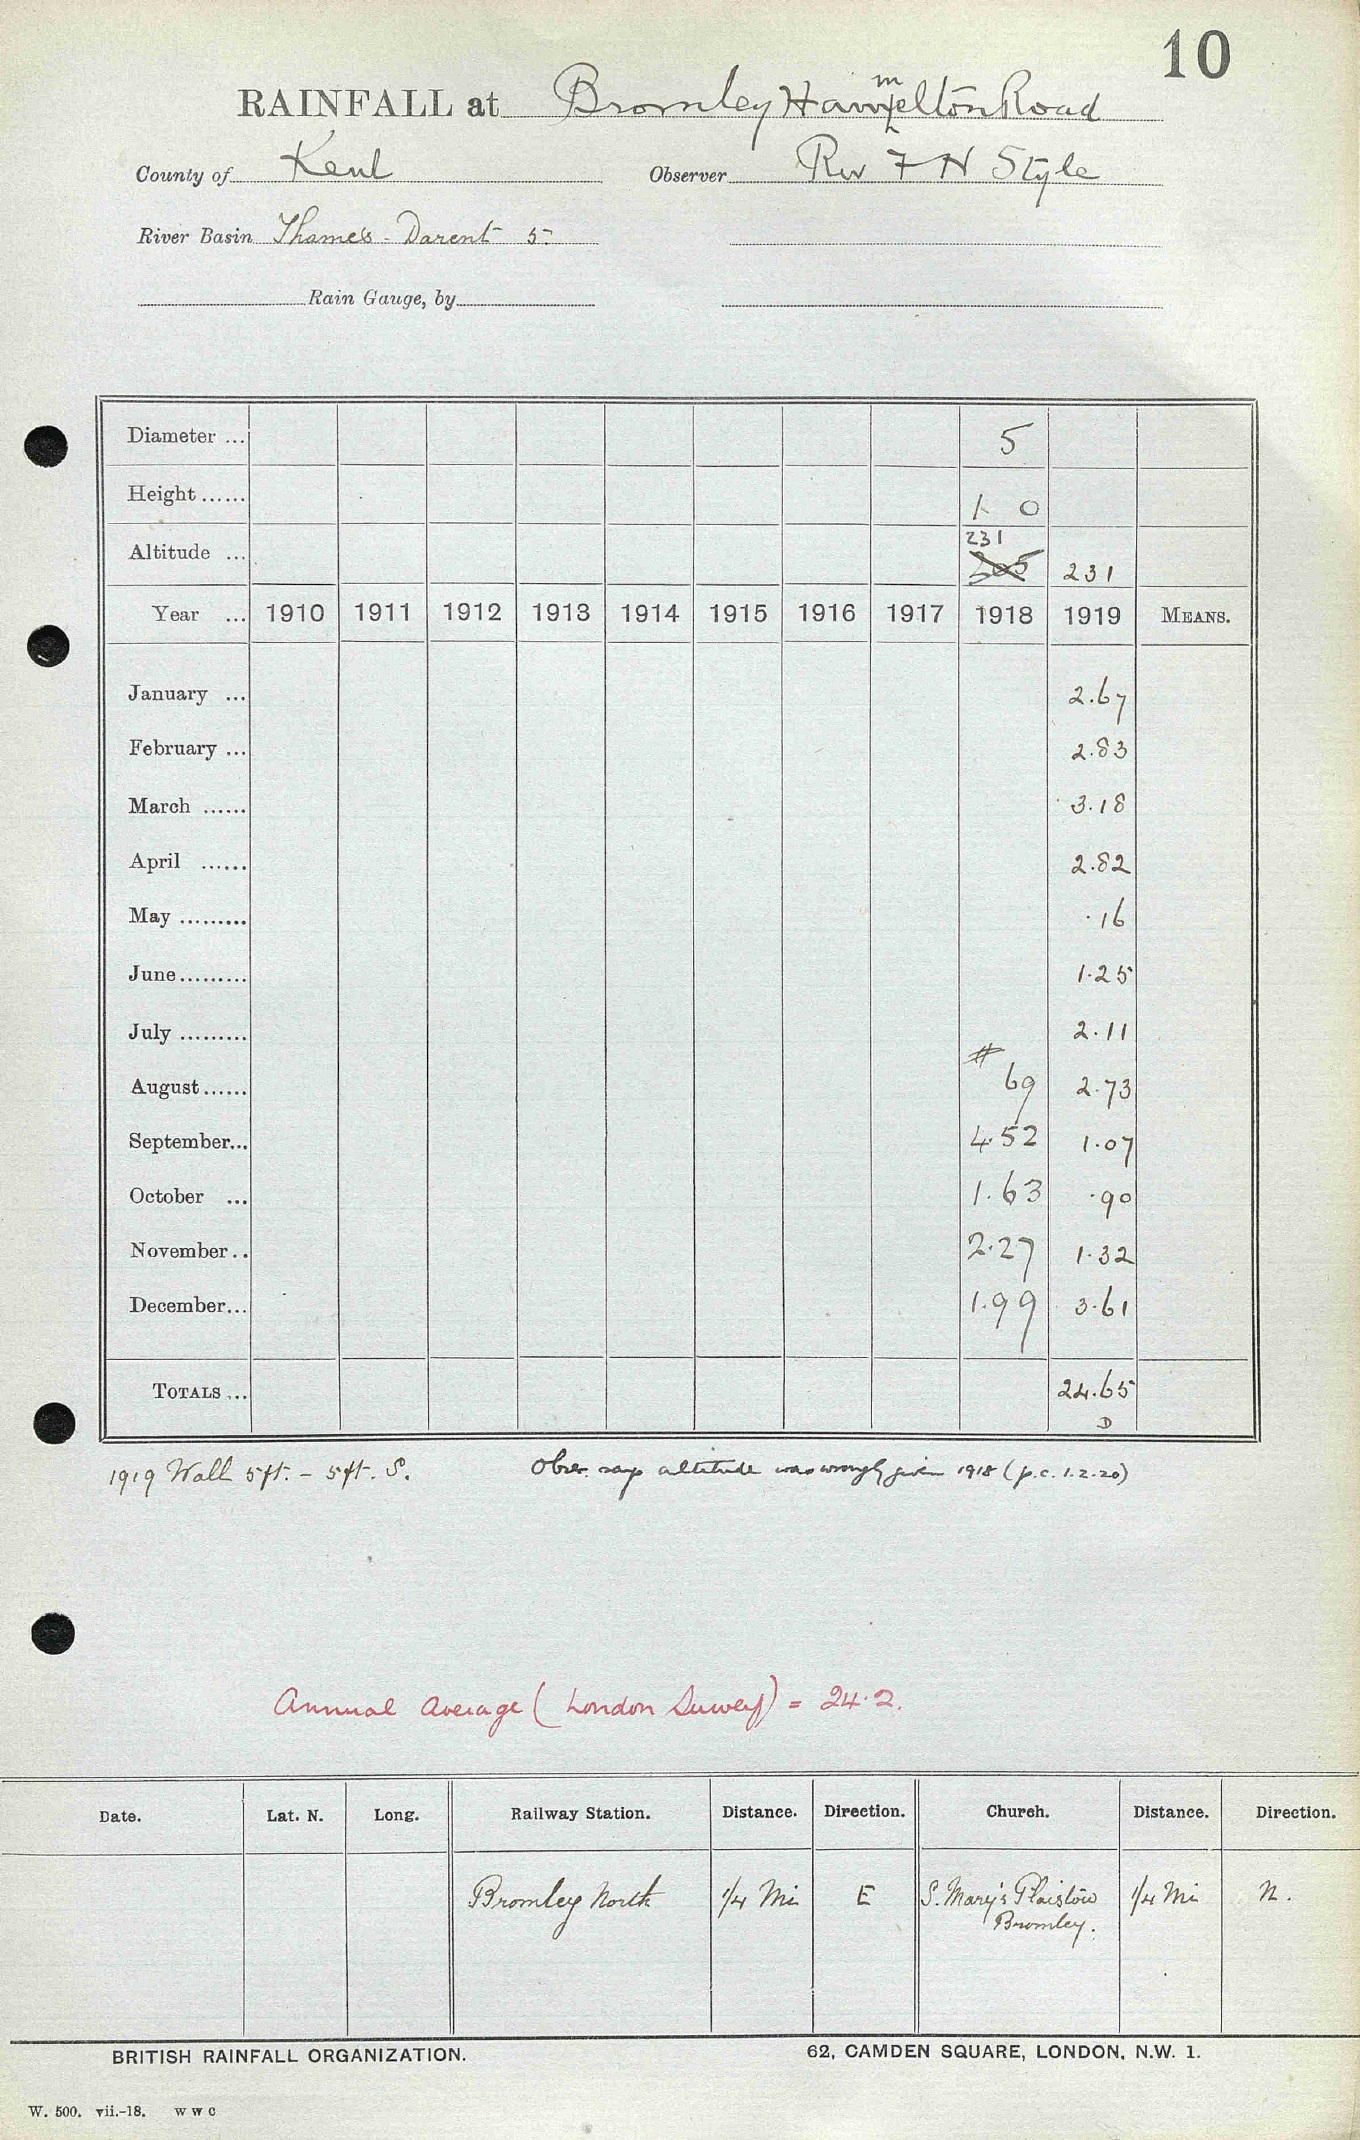 10
RAINFALL at Bromley Hammelton Road
County of Kent Observer Rev F H Style
River Basin Thames - Darent 5
Rain Gauge, by
Diameter ... 5
Height ...... 1 0
231
Altitude ... 205 231
Year ... 1910 1911 1912 1913 1914 1915 1916 1917 1918 1919 MEANS.
January ... 2.67
February ... 2.83
March ...... 3.18
April ...... 2.82
May ......... .16
June ......... 1.25
July ......... 2.11
#
August ...... 69 2.73
September... 4.52 1.07
October ... 1.63 .90
November .. 2.27 1.32
December... 1.99 3.61
TOTALS ... 24.65
D
1919 Wall 5ft. - 5ft. S. Obser. says altitude was wrongly given 1918 (p.c. 1.2.20)
Annual Average (London Survey) = 24.2.
Date. Lat. N. Long. Railway Station. Distance. Direction. Church. Distance. Direction.
Bromley North 1/4 Mi E S. Mary's Plaistow 1/4 Mi N.
Bromley.
BRITISH RAINFALL ORGANIZATION. 62, CAMDEN SQUARE, LONDON, N.W. 1.
W. 500. vii.-18. W W C